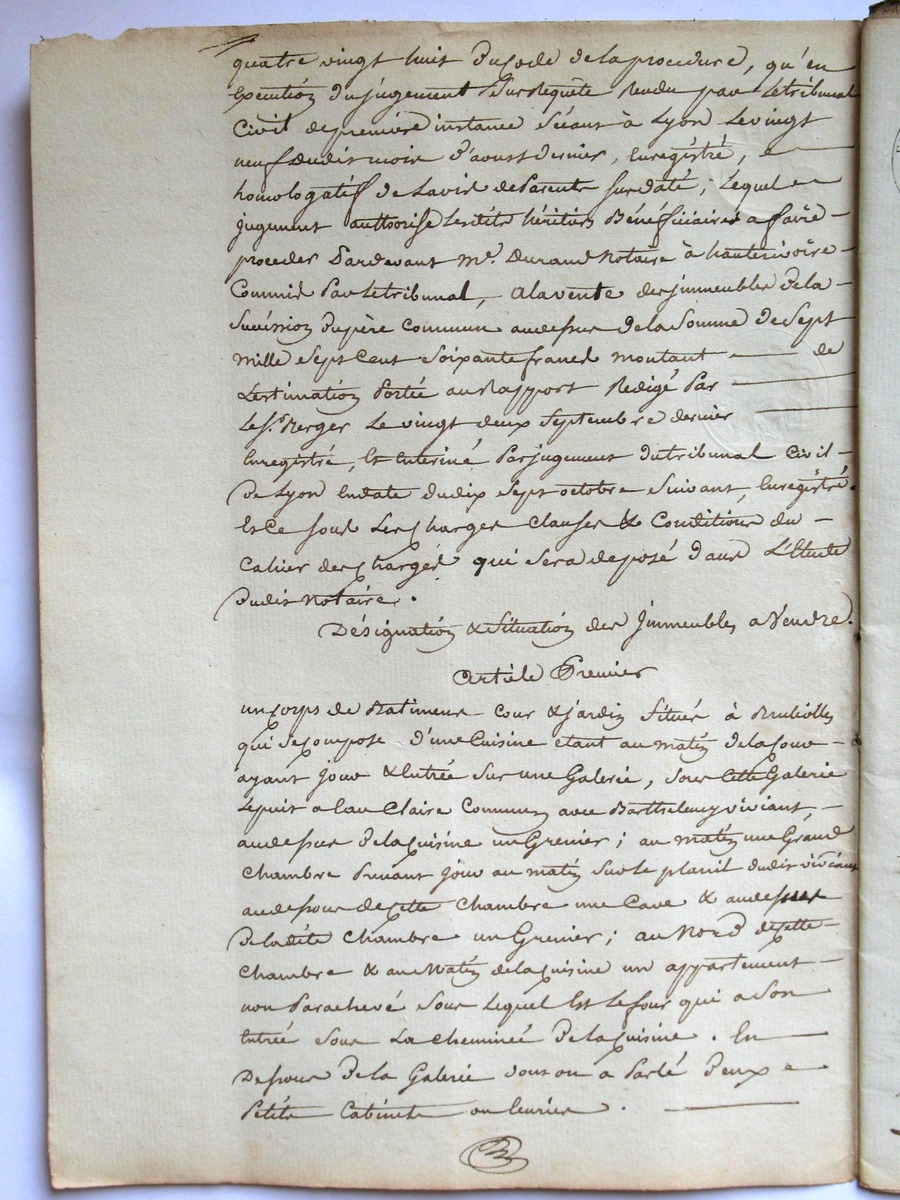 quatre vingt huit du Code de la procedure, qu'en
Execution du jugement Sur Requête Rendu par Le tribunal
Civil de premiere instance Séant à Lyon Le vingt
neuf dudit mois d'aoust dernier, Enregistré, e
homologatif de Lavis de Parents Susdaté ; Lequel
jugement authorise Lesdits héritiers Bénéficiaires a faire
proceder Pardevant Me. Durand Notaire à hauterivoire
Commis Par Le tribunal, a la vente des jmmeubles De la
Succéssion Du père Commun au dessus de la Somme de Sept
Mille Sept Cent Soixante francs montant de
Lestimation Portée au Rapport Redigé Par
Le Sr. Berger Le vingt deux Septembre dernier
Enregistré, Et Enteriné Par jugement du tribunal Civil
De Lyon En date du dix Sept octobre Suivant, Enregistré.
Et Ce sous Les Charges Clauses & Conditions du
Cahier des Charges qui Sera deposé dans L'Etude
Dudit Notaire.
Désignation & Situation des Jmmeubles a Vendre.
Article Premier
un Corps de Batiments Cour & jardin Situés à Brullioles
qui Se Compose D'une Cuisine etant au matin de la Cour
ayant jour & Entrée Sur une Galerie, Sous Cette Galerie
Le puit a Eau Claire Commun avec Barthelemy viviant,
au dessus De la Cuisine un Grenier ; au matin une Grand
Chambre Prenant jour au matin Sur le dudit viviant
au dessous de Cette Chambre une Cave & au dessus
De ladite Chambre un Grenier ; au Nord de Cette
Chambre & au Matin de la Cuisine un appartement
non Parachevé Sous Lequel Est Le four qui a Son
Entrée Sous La Cheminée De la Cuisine. En
Dessous De la Galerie dont on a Parlé Deux
Petits Cabinets ou